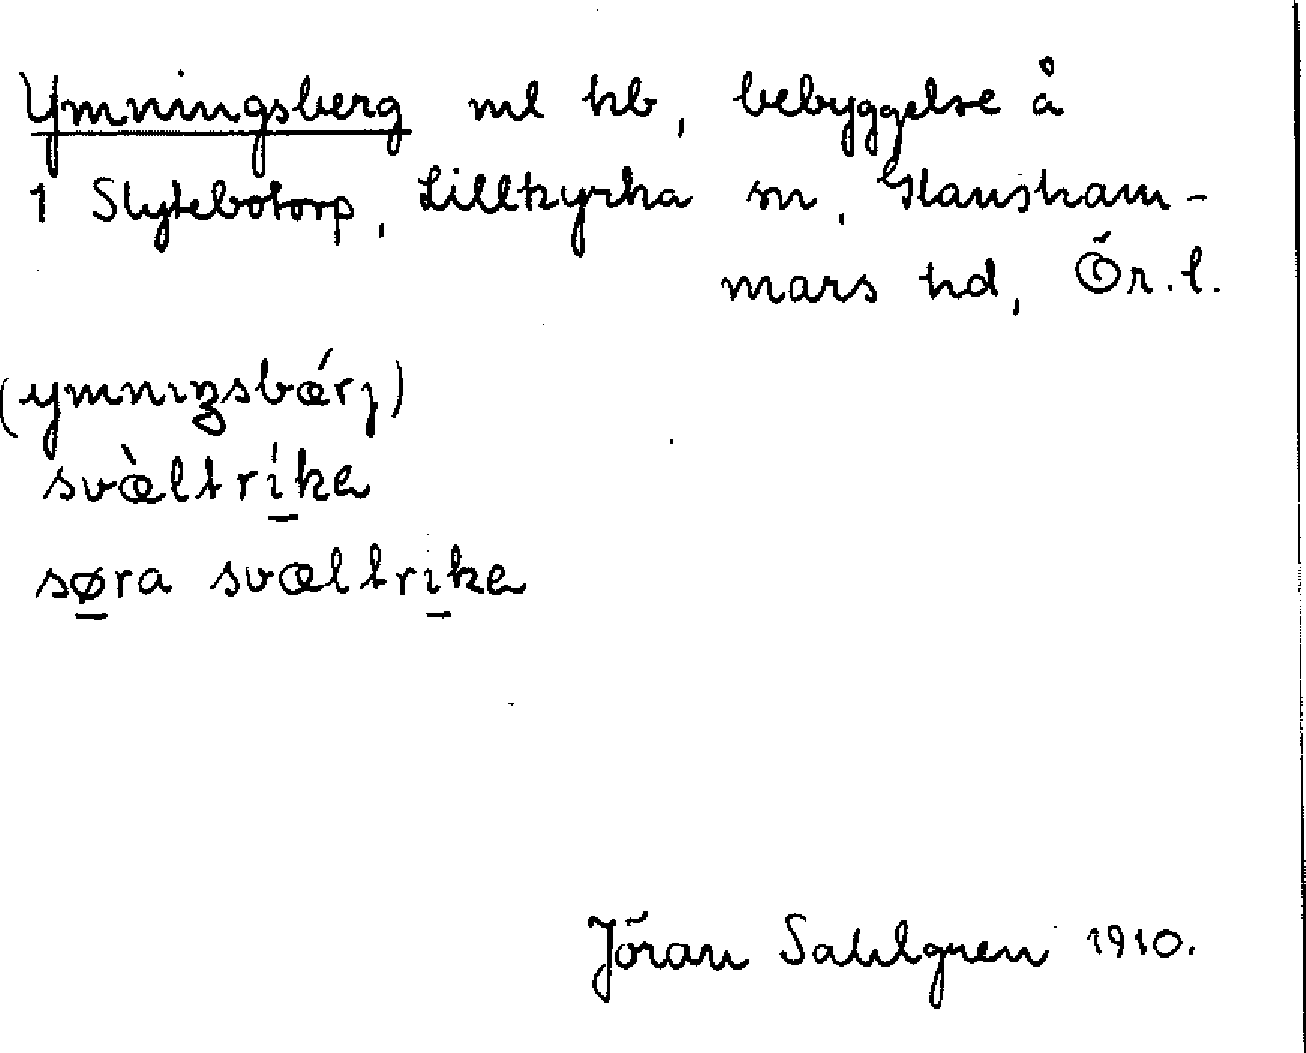 Ymningsberg ml hb, bebyggelse å
1 Slytebotorp, Lillkyrka sn, Glansham-
mars hd, Ör.l.
(ymnıŋsbǽrj)
svæ̀ltrí̱ka
sø̱ra svæltri̱ka
Jöran Sahlgren 1910.